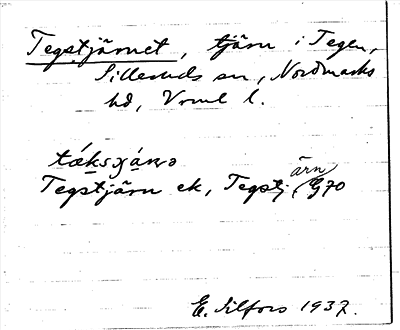 Tegstjärnet, tjärn i Tegen,
Silleruds sn, Nordmarks
hd, Vrml l.
Tegstjärn ek, Tegstj. G70
ärn
E. Silfors 1937.